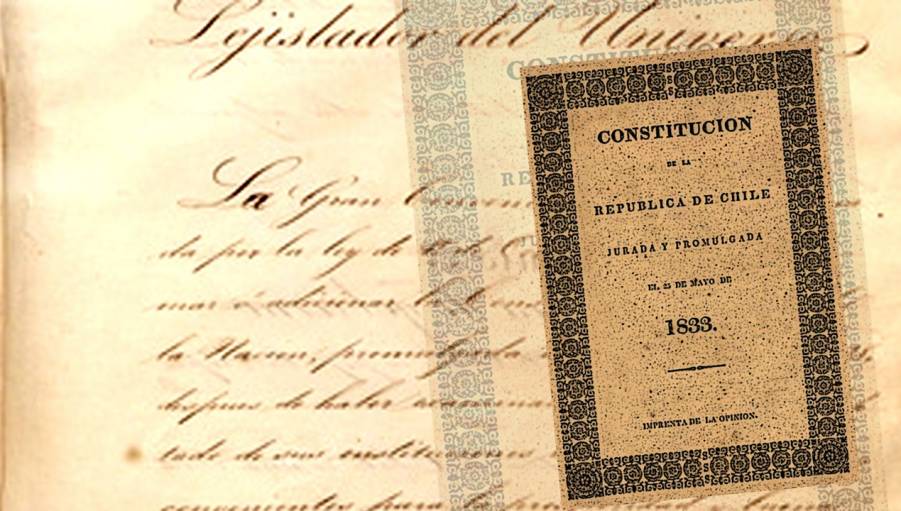 Lejislador del Universo
La Gran Conven
da por la ley de
mar ó adicionar la Cons
la Nacion, promulgada
despues de haber examina
tado de sus instituciones
convenientes para la
CONSTITUCION
RE
JU
CONSTITUCION
DE LA
REPUBLICA DE CHILE
JURADA Y PROMULGADA
EL 25 DE MAYO DE
1833.
IMPRENTA DE LA OPINION.